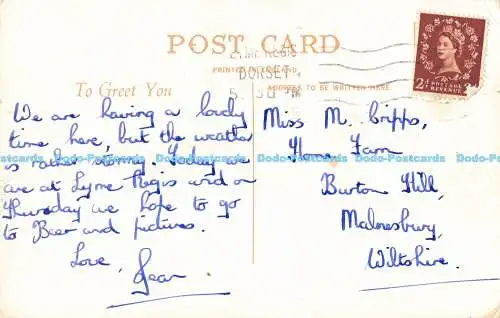 POST CARD
LYME REGIS
DORSET
PRINTED IN ENGLAND
ADDRESS TO BE WRITTEN HERE
2½d POSTAGE REVENUE
To Greet You
We are having a lovely
time here, but the weather
is rather stormy. Today we
are at Lyme Regis and on
Thursday we hope to go
to Beer and pictures.
Love,
Jean
Miss M. Cripps,
Home Farm
Burton Hill,
Malmesbury,
Wiltshire.
Dodo-Postcards Dodo-Postcards Dodo-Postcards Dodo-Postcards Dodo-Postcards Dodo-Postcards